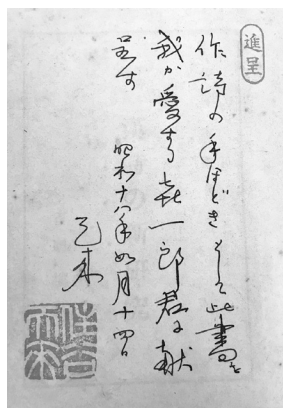 進呈
作詩の手ほどきとして此書を
我が愛する㐂一郎君に献
呈す
昭和十八年如月十四日